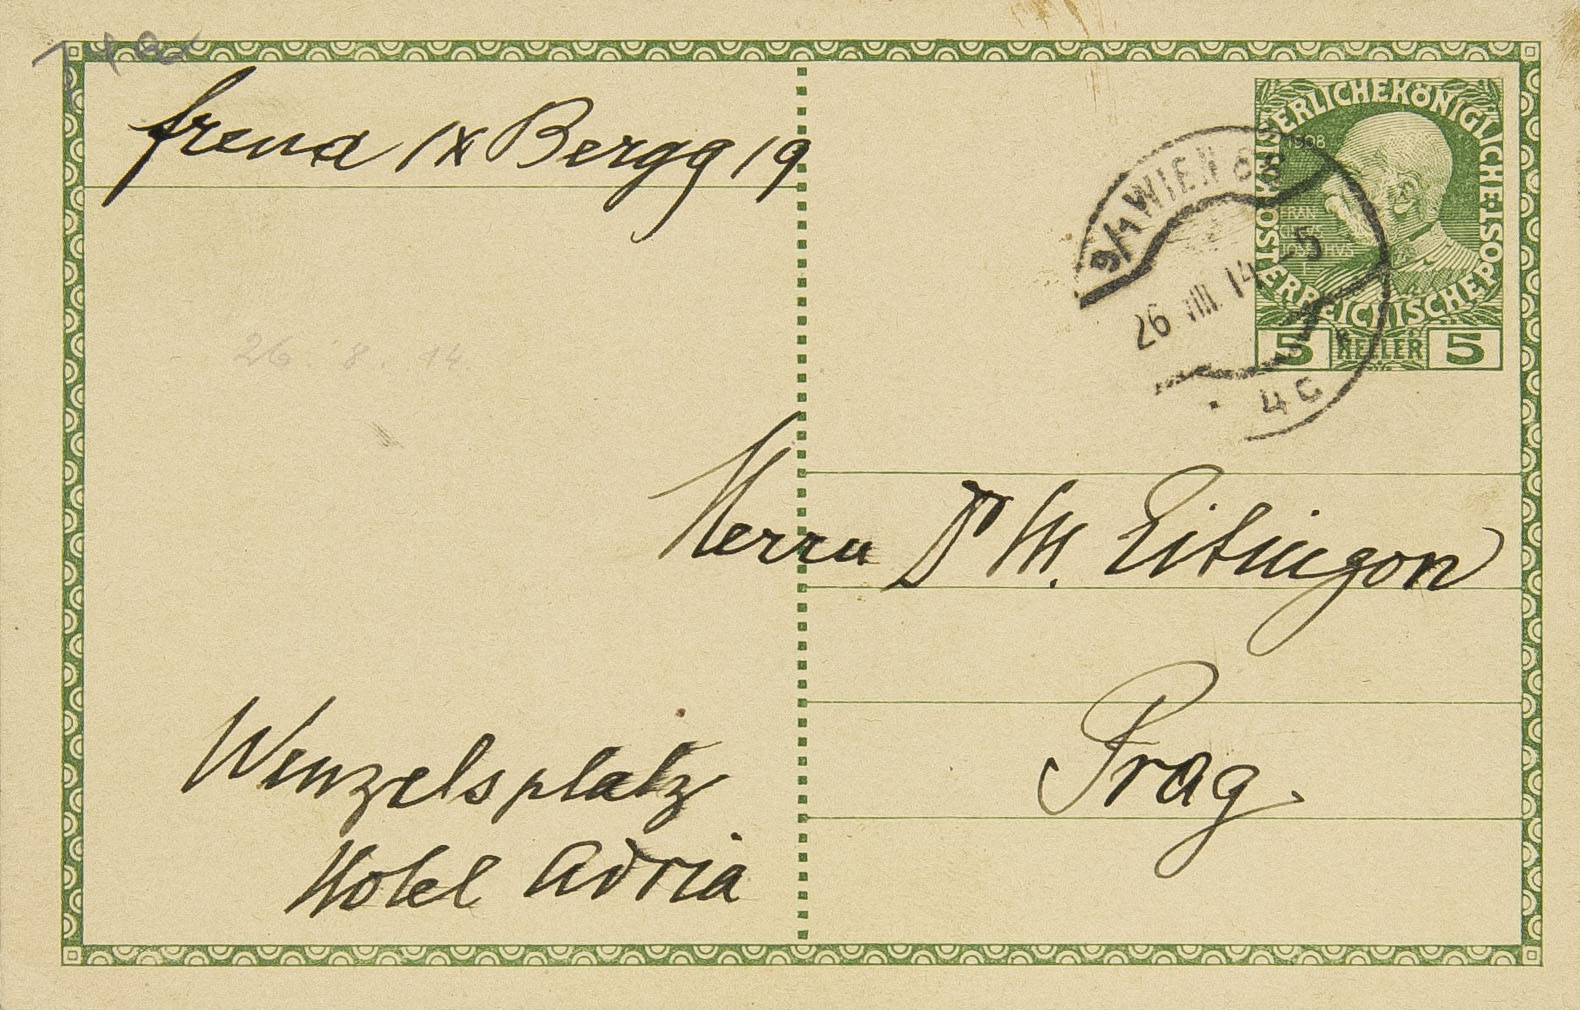 freud IX Bergg 19
KAISERLICHEKÖNIGLICHE ÖSTERREICHISCHE POST
1908
5 HELLER 5
9/1 WIEN
26 VIII 14 - 5
4c
26. 8. 14.
Herrn Dr M. Eitingon
Prag.
Wenzelsplatz
Hotel Adria